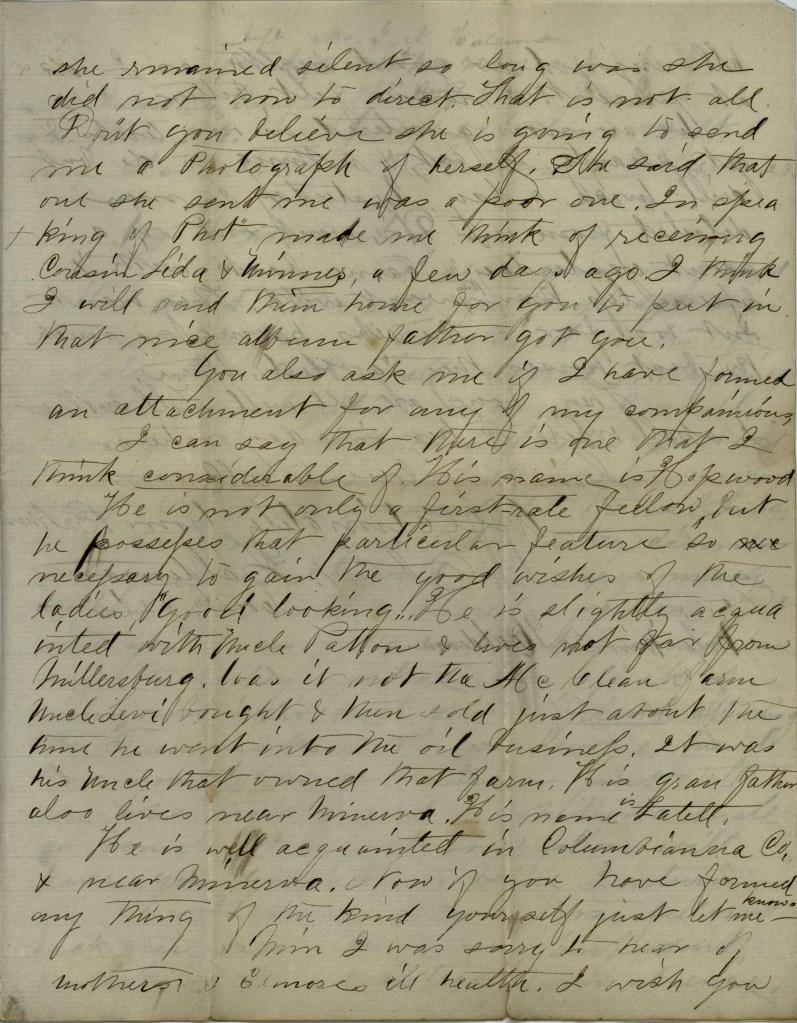 she remained silent so long was she
did not now to direct. That is not all.
Don't you believe she is going to send
me a Photograph of herself. She said that
one she sent me was a poor one. In spea
king of Phot" made me think of receiving
Cousin Lida & Minnes, a few days ago. I think
I will send them home for you to put in
that nice album father got you.
You also ask me if I have formed
an attachment for any of my companions,
I can say that there is one that I
think considerable of. His name is Hopwood
He is not only a first-rate fellow, but
he possesses that particular feature so nec
necessary to gain the good wishes of the
ladies, "Good looking". He is slightly acqua
inted with Uncle Patton & lives not far from
Millersburg. Was it not the McClean farm
Uncle Levi bought & then sold just about the
time he went into the oil business. It was
his Uncle that owned that farm. His gran father
also lives near Minerva. His name is Latell.
He is well acquainted in Columbianna Co,
& near Minerva. Now if you have formed
any thing of the kind yourself just let me know-
Min I was sorry to hear of
mothers & Elmores ill health. I wish you